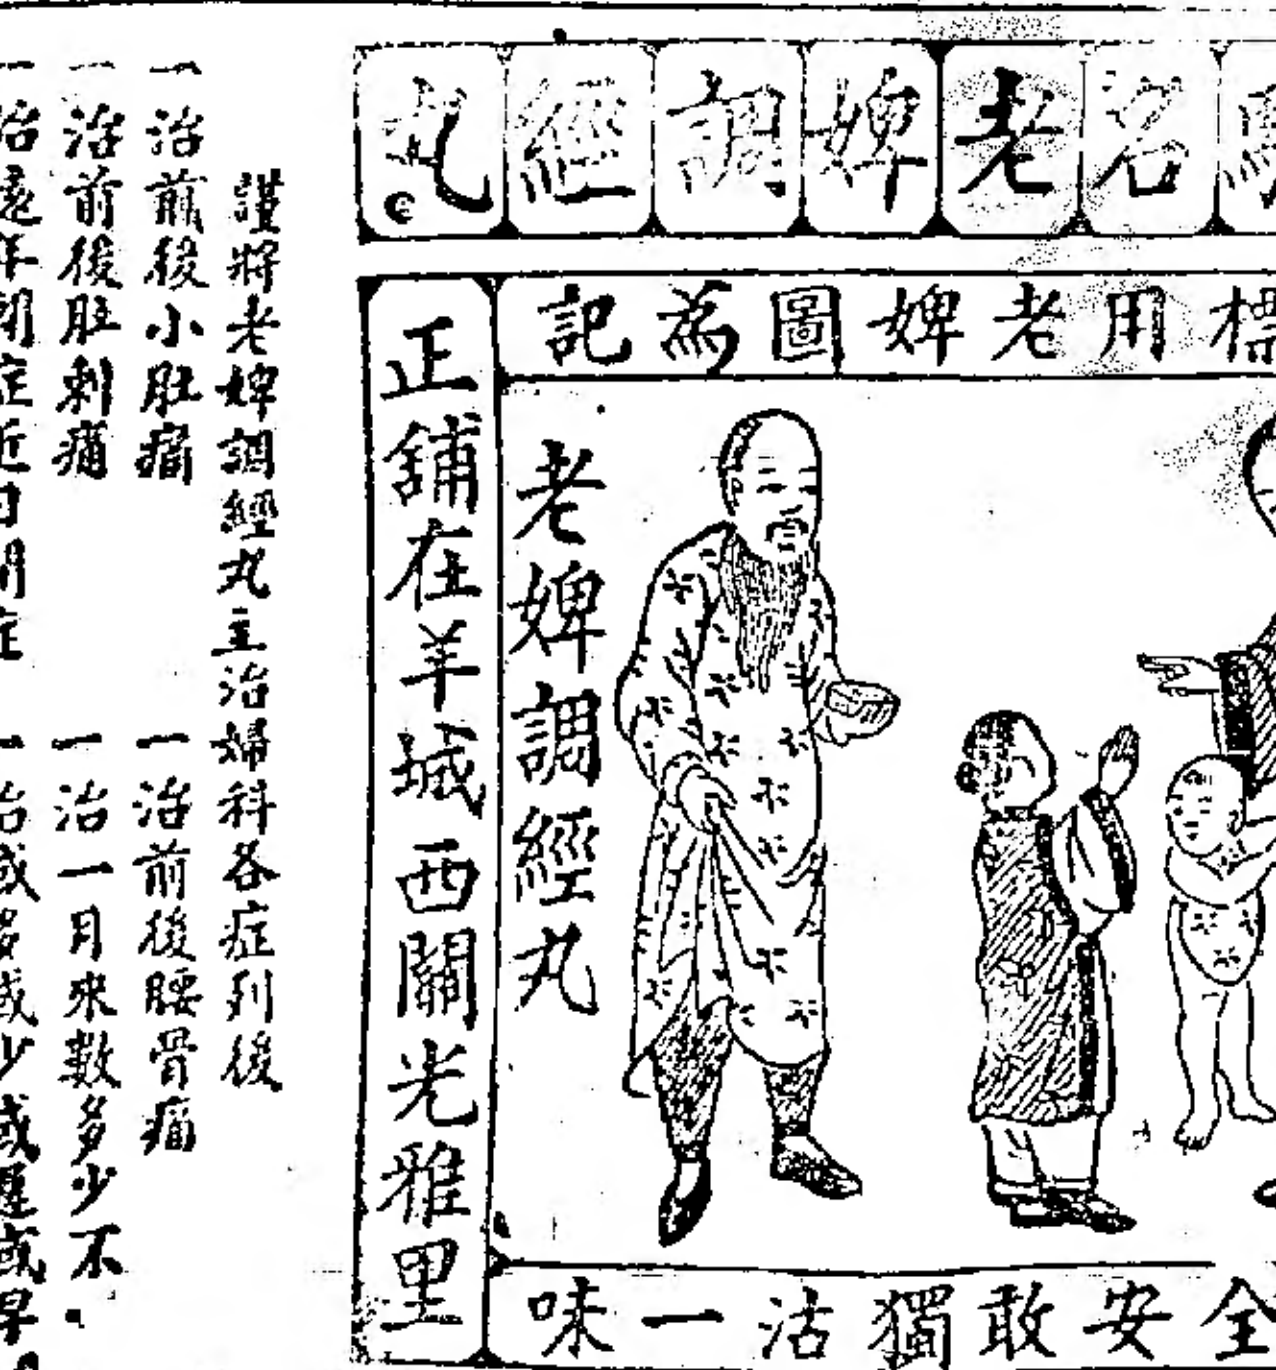 名老婢調經丸
標用老婢圖為記
老婢調經丸
正舖在羊城西關光雅里
全安敢獨沽一味
謹將老婢調經丸主治婦科各症列後
一治前後小肚痛
一治前後腰骨痛
一治前後肚刺痛
一治一月來數多少不
一治遠年閉症近日閉症
一治或多或少或遲或早